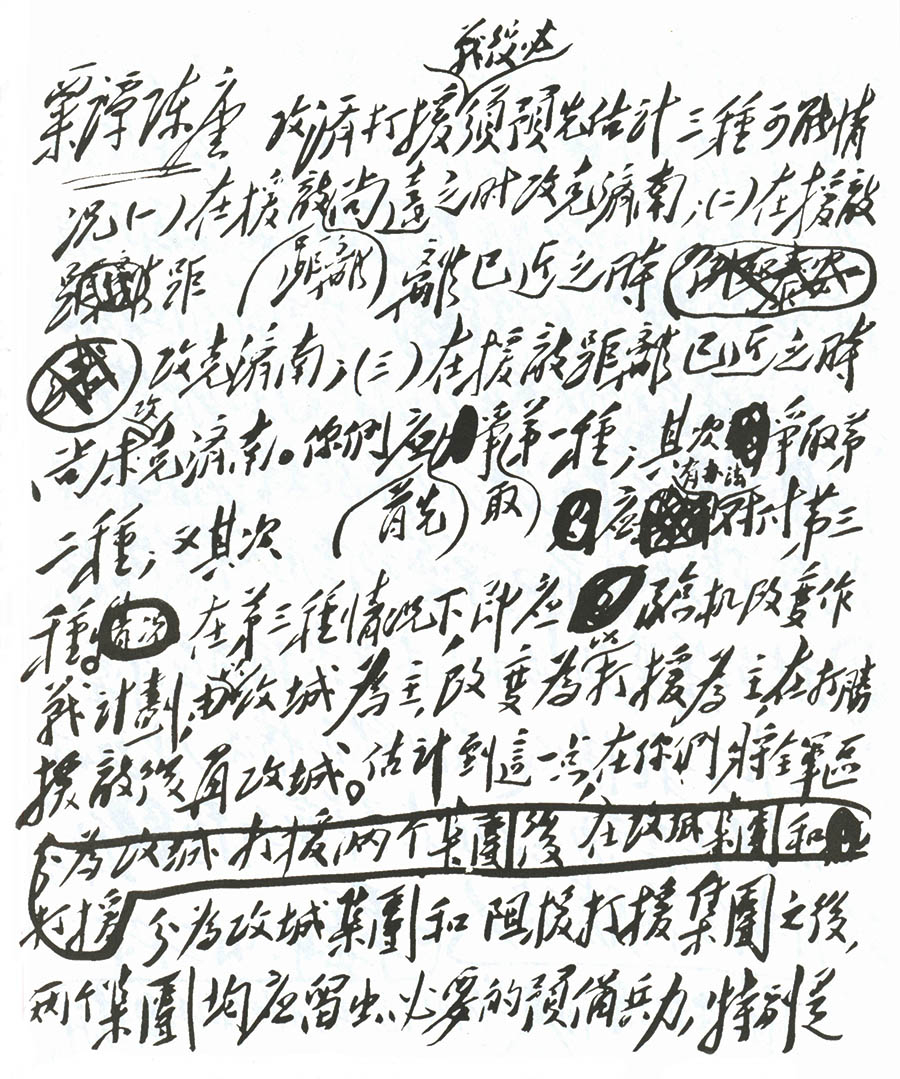 戰役必
粟譚陳唐 攻濟打援須預先估計三種可能情
況(一)在援敵尚遠之時攻克濟南;(二)在援敵
距離
距 離已近之時
攻克濟南;(三)在援敵距離已近之時
攻
尚未克濟南。你們應爭第一種;其次爭取第
首先 取 有办法
二種;又其次 應對付第三
種。在第三種情況下,即應臨机改變作
戰計劃,由攻城為主,改變為以打援為主,在打勝
援敵後再攻城。估計到這一点,在你們將全軍區
分為攻城打援兩个集團後在攻城集團和
打援 分為攻城集團和阻援打援集團之後,
兩个集團均應留出必要的預備兵力,特別是